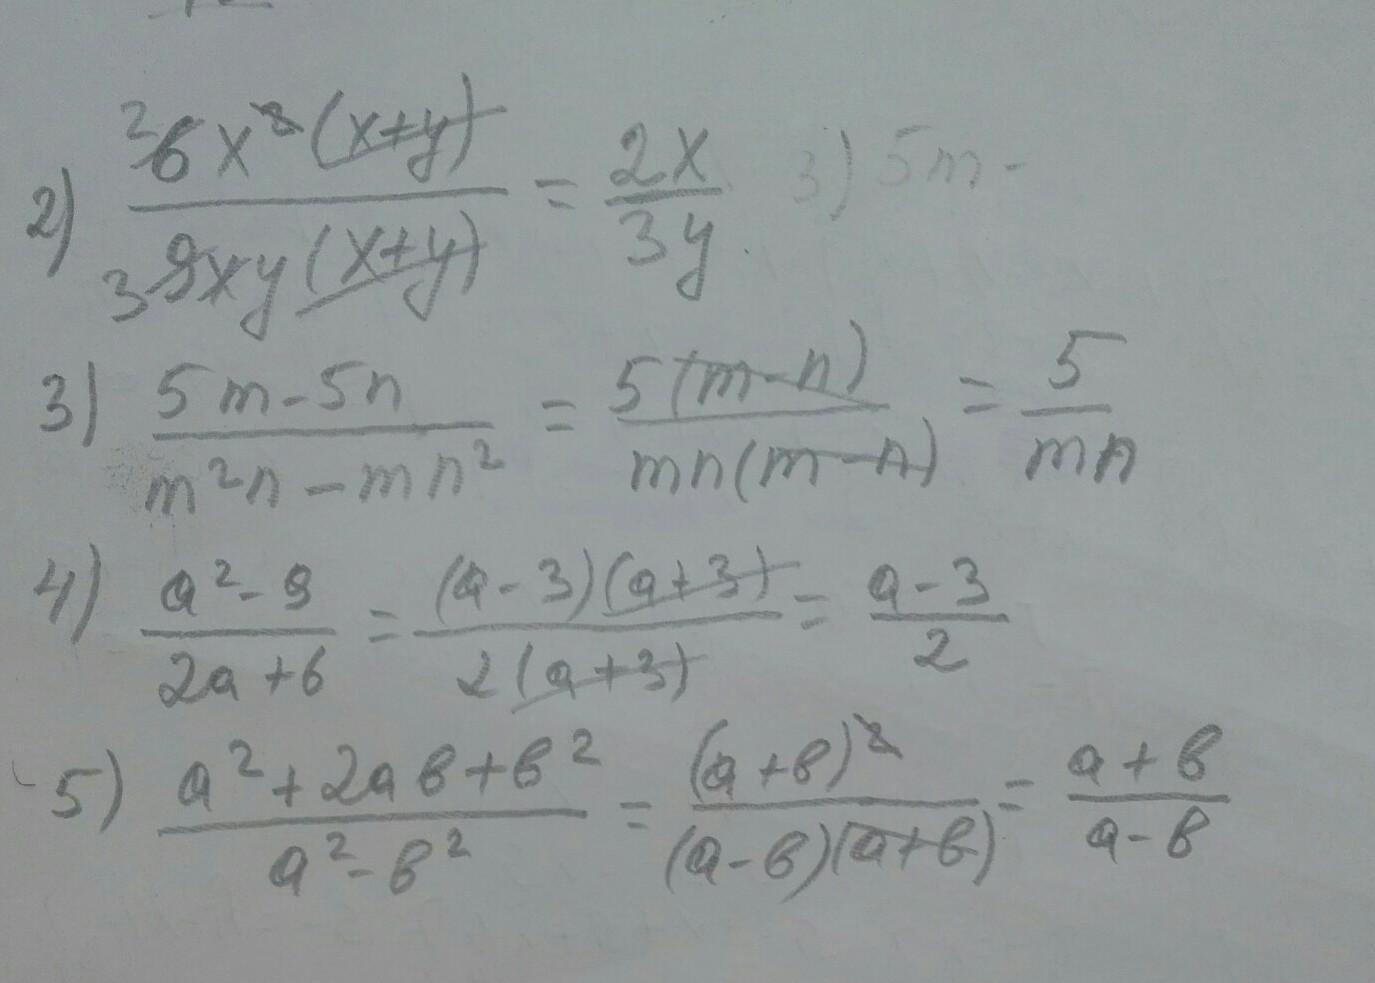 2) 6x²(x+y) / 9xy(x+y) = 2x / 3y 3) 5m -
3) 5m-5n / m²n-mn² = 5(m-n) / mn(m-n) = 5 / mn
4) a²-9 / 2a+6 = (a-3)(a+3) / 2(a+3) = a-3 / 2
5) a²+2aв+в² / a²-в² = (a+в)² / (a-в)(a+в) = a+в / a-в